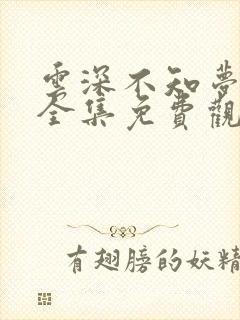 雲深不知夢
全集免費觀
有翅膀的妖精